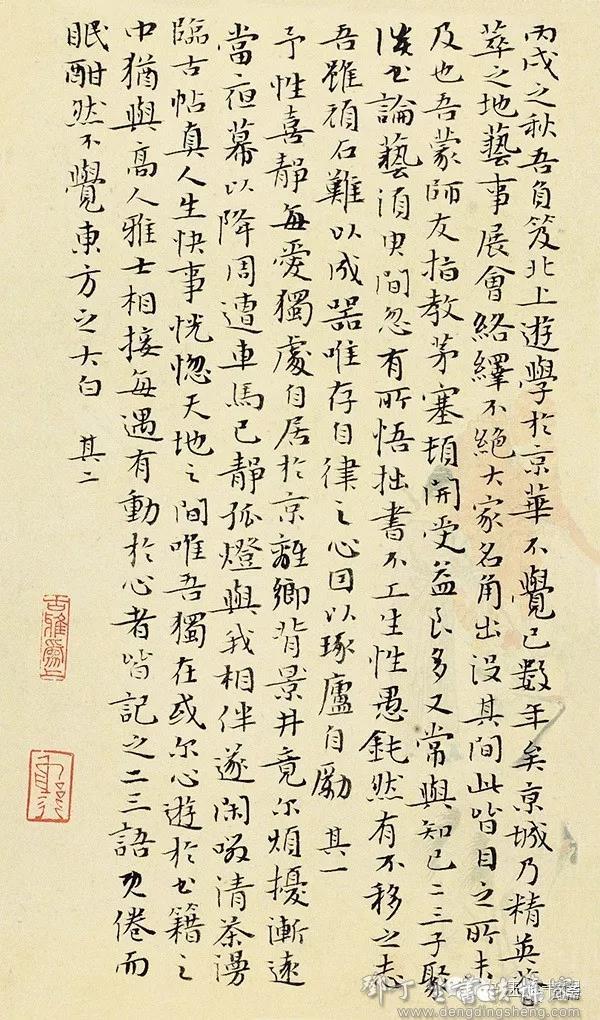 丙戌之秋吾负笈北上遊學於京華不覺已數年矣京城乃精英薈
萃之地藝事展會絡繹不絕大家名角出没其間此皆目之所未
及也吾蒙師友指教茅塞頓開受益良多又常與知己二三子聚
談书論藝須臾間忽有所悟拙書不工生性愚鈍然有不移之志
吾雖頑石難以成器唯存自律之心因以琢廬自勵 其一
予性喜靜每愛獨處自居於京離鄉背景井竟尔煩擾漸遠
當夜幕以降周遭車馬已靜孤燈與我相伴遂閑啜清茶漫
臨古帖真人生快事恍惚天地之间唯吾獨在或尔心遊於书籍之
中猶與高人雅士相接每遇有動於心者皆記之二三語及倦而
眠酣然不覺東方之大白 其二
www.dengdingsheng.com